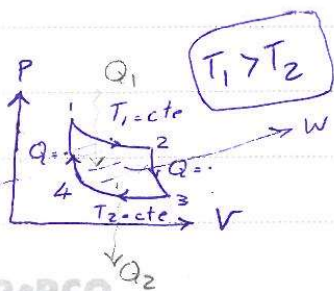 T₁ > T₂
P
Q₁
1
T₁=cte
2
W
Q=
Q=
4
3
T₂=cte
V
Q₂